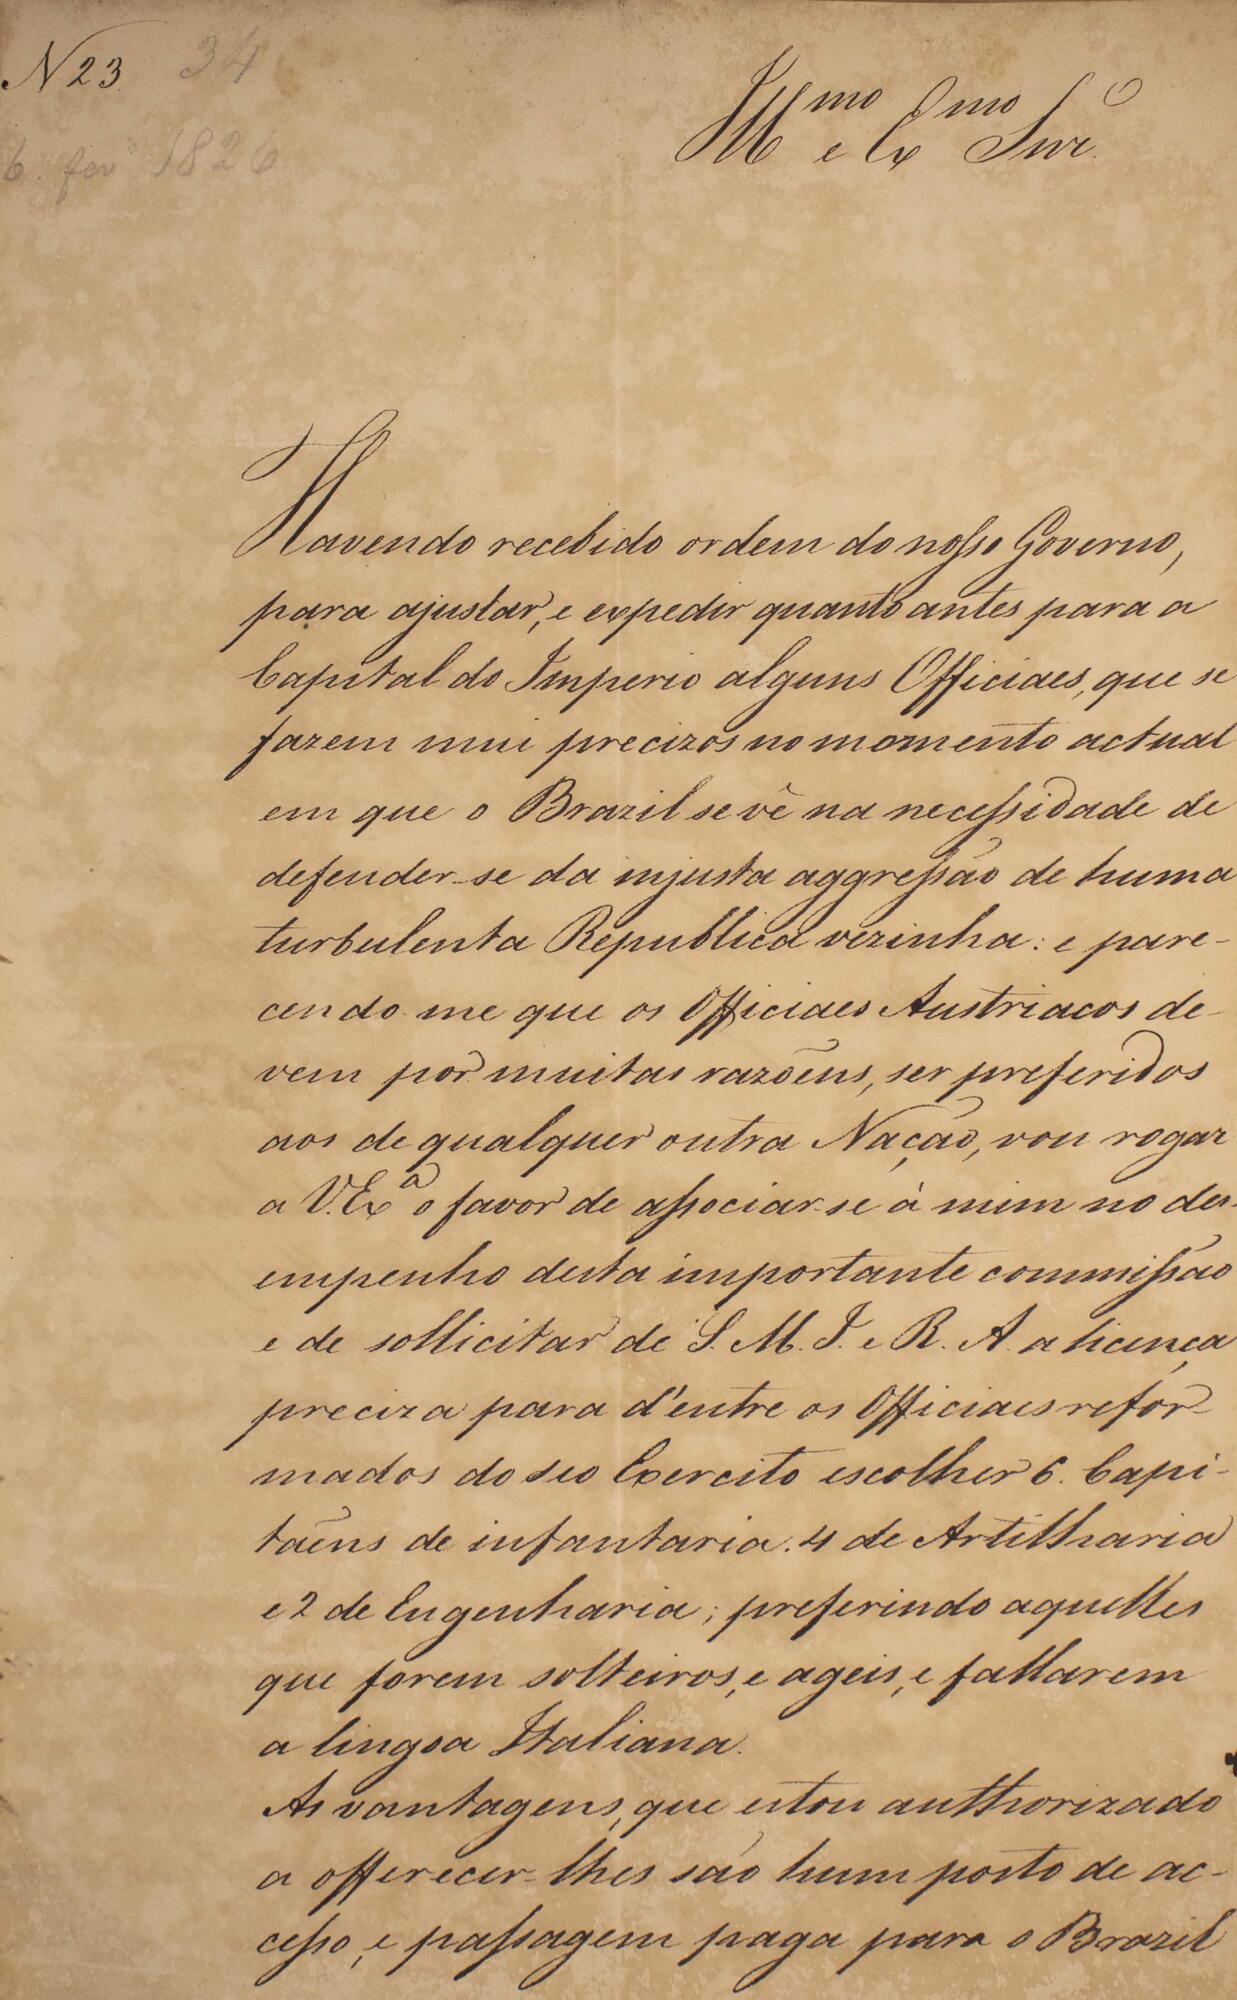 N 23 34
6. fevº 1826
Illmo e Exmo Snr.
Havendo recebido ordem do nosso Governo,
para ajustar, e expedir quanto antes para a
Capital do Imperio alguns Officiaes, que se
fazem mui precizos no momento actual
em que o Brazil se vê na necessidade de
defender-se da injusta aggressão de huma
turbulenta Republica vezinha: e pare-
cendo me que os Officiaes Austriacos de-
vem por muitas razoẽns, ser preferidos
aos de qualquer outra Nação, vou rogar
a V. Exª o favor de associar-se à mim no des-
empenho desta importante commissão
e de sollicitar de S. M. I. e R. A. a licença
preciza para d'entre os Officiaes refor-
mados do seo Exercito escolher 6. Capi-
taẽns de infantaria. 4 de Artilharia
e 2 de Engenharia; preferindo aquelles
que forem solteiros, e ageis, e fallarem
a lingoa Italiana.
As vantagens, que estou authorizado
a offerecer-lhes são hum posto de ac-
cesso, e passagem paga para o Brazil